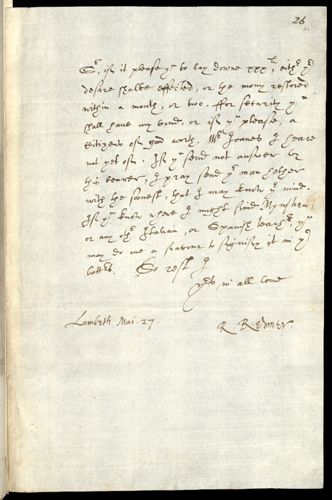 26
Sr, if it please yo to lay downe xxxl, eithr yr
desire shalbe effected, or the mony restored
within a month, or two. ffor security yu
shall have my bond, or if yu please, a
Citizens of good worth. Mr I heare
not yet of. If yu send not answer by
the bearer, I pray send yr man hether
with the soonest, that I may know yr mind.
If yu know where I might finde
or any othr Italian, or Spanish teachr, yu
may do me a favour to signify it in yr
letter. So rest I
yors in all love
Lambeth Mai. 27.
R. Redmer.